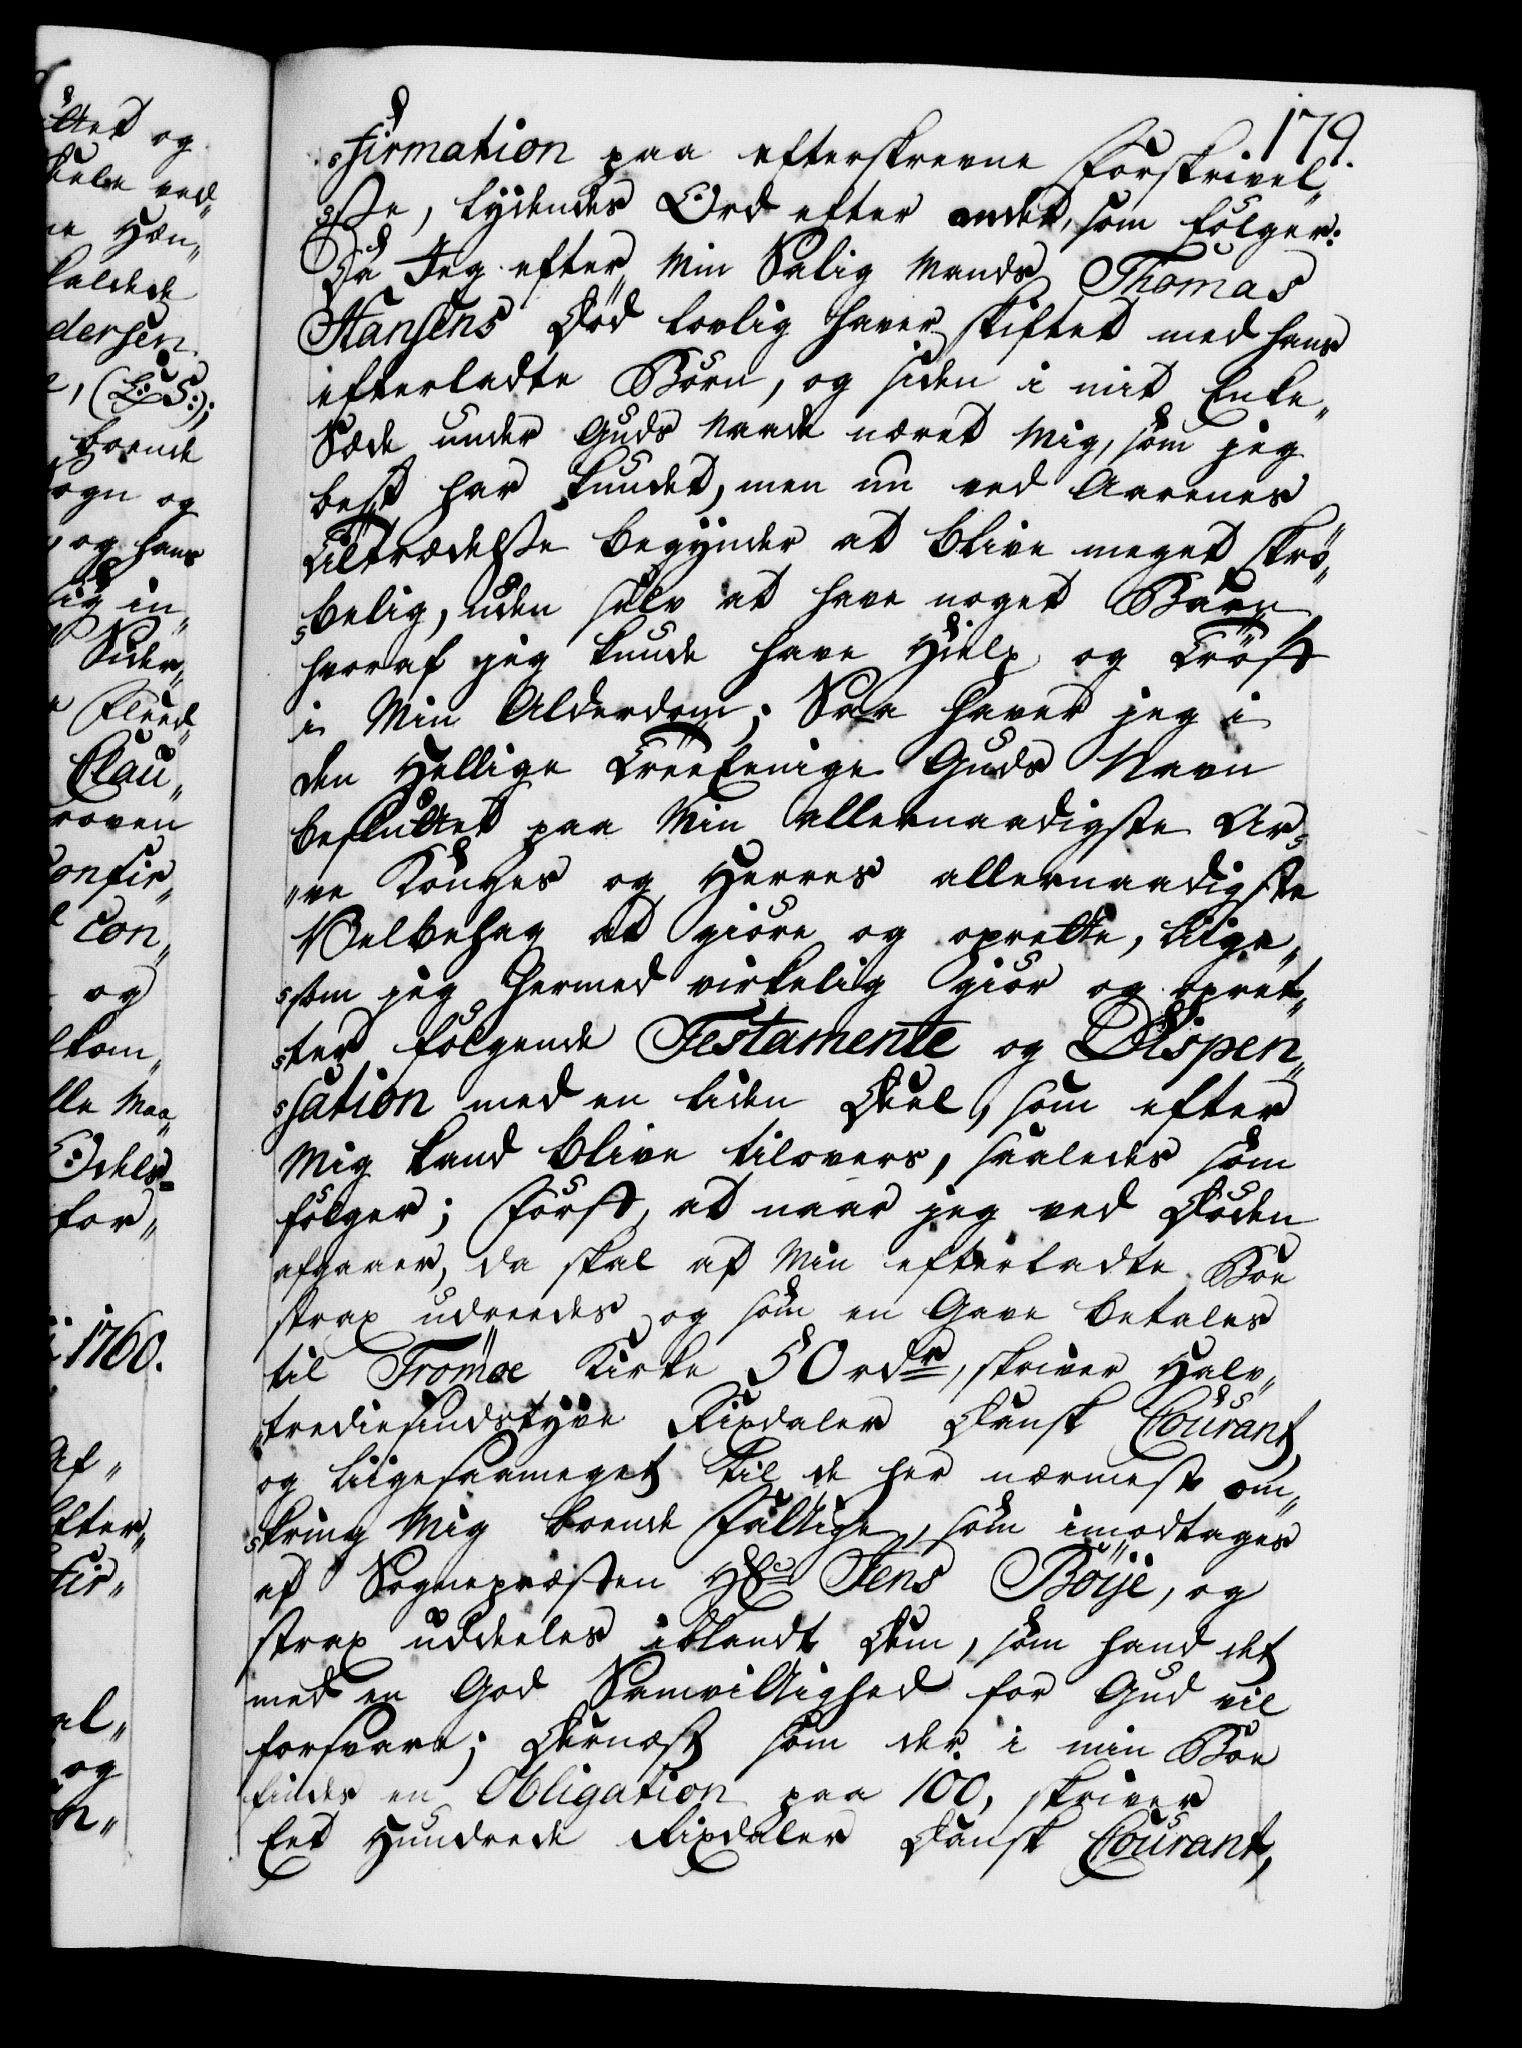 179.
firmation paa efterskrevne Forskrivel„
„sse, lydendes Ord efter andet, som følger:
Da Jeg efter Min Salig Mands Thomas
Hansens Død lovlig haver skiftet med hans
efterladte Børn, og siden i mit Enke„
Sæde under Guds Naade næret Mig, som jeg
best har kundet, men nu ved Aarenes
Tiltrædelsse begynder at blive meget skrø„
„belig, uden selv at have noget Barn,
hvoraf jeg kunde have Hielp og Trøst
i Min Alderdom; Saa haver jeg i
den Hellige Treeenige Guds Navn
besluttet paa Min allernaadigste Ar„
„ve Konges og Herres allernaadigste
Velbehag at giøre og oprette, liige„
„som jeg hermed virkelig giør og opret„
„ter følgende Testamente og Dispen„
„sation med en liden Deel, som efter
Mig kand blive tilovers, saaledes som
følger; Først, at naar jeg ved Døden
afgaaer, da skal af Min efterladte Boe
strax udreedes og som en Gave betales
til Tromøe Kirke 50 rdr, skriver Halv„
„trediesindstyve Rixdaler Dansk Courant,
og liigesaameget til de her nærmest om„
„kring Mig boende Fattige, som imodtages
af Sognepræsten Hr Jens Böije, og
strax uddeeles iblandt Dem, som hand det
med en God Samvittighed for Gud vil
forsvare; Dernæst som der i min Boe
findes en Obligation paa 100, skriver
Eet Hundrede Rixdaler Dansk Courant,